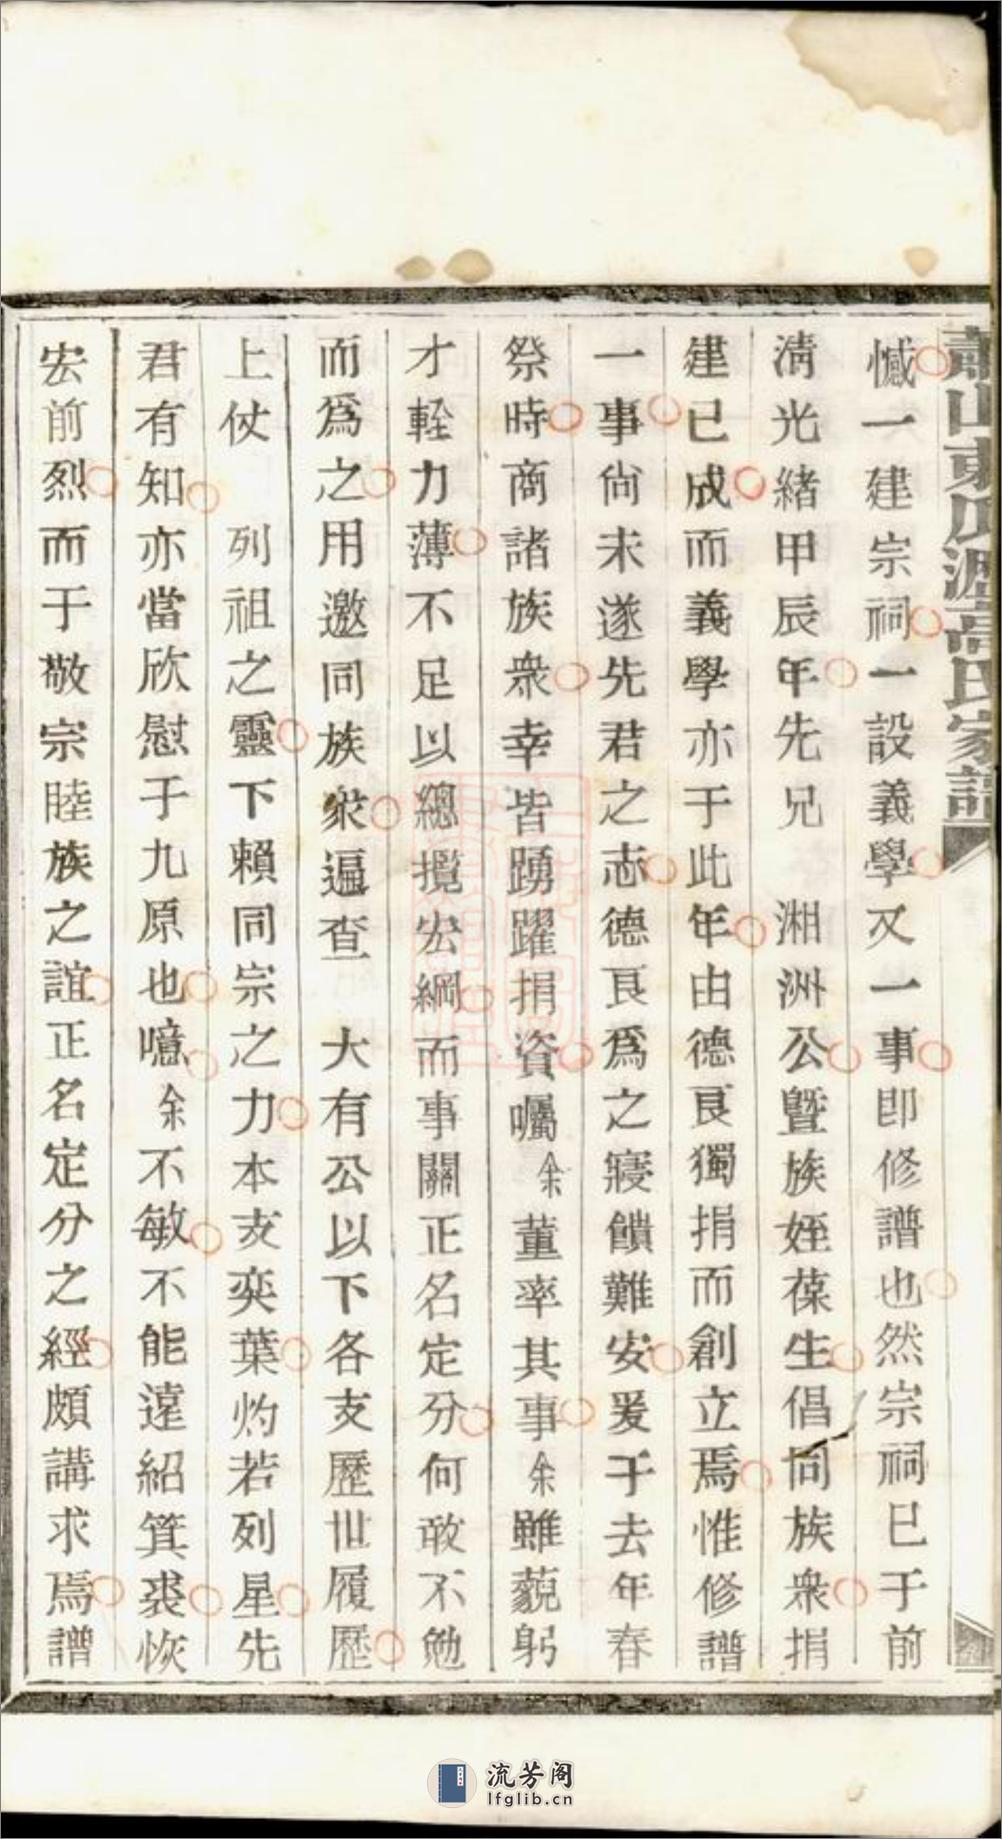 蕭山東瓜瀝高氏家譜
憾一建宗祠一設義學又一事卽修譜也然宗祠已于前
淸光緒甲辰年先兄 湘洲公曁族姪葆生倡同族衆捐
建已成而義學亦于此年由德良獨捐而創立焉惟修譜
一事尙未遂先君之志德良爲之寢饋難安爰于去年春
祭時商諸族衆幸皆踴躍捐資囑余董率其事余雖藐躬
才輊力薄不足以總攬宏綱而事關正名定分何敢不勉
而爲之用邀同族衆遍查 大有公以下各支歷世履歷
上仗 列祖之靈下賴同宗之力本支奕葉灼若列星先
君有知亦當欣慰于九原也噫余不敏不能遠紹箕裘恢
宏前烈而于敬宗睦族之誼正名定分之經頗講求焉譜
流芳阁
lfglib.cn